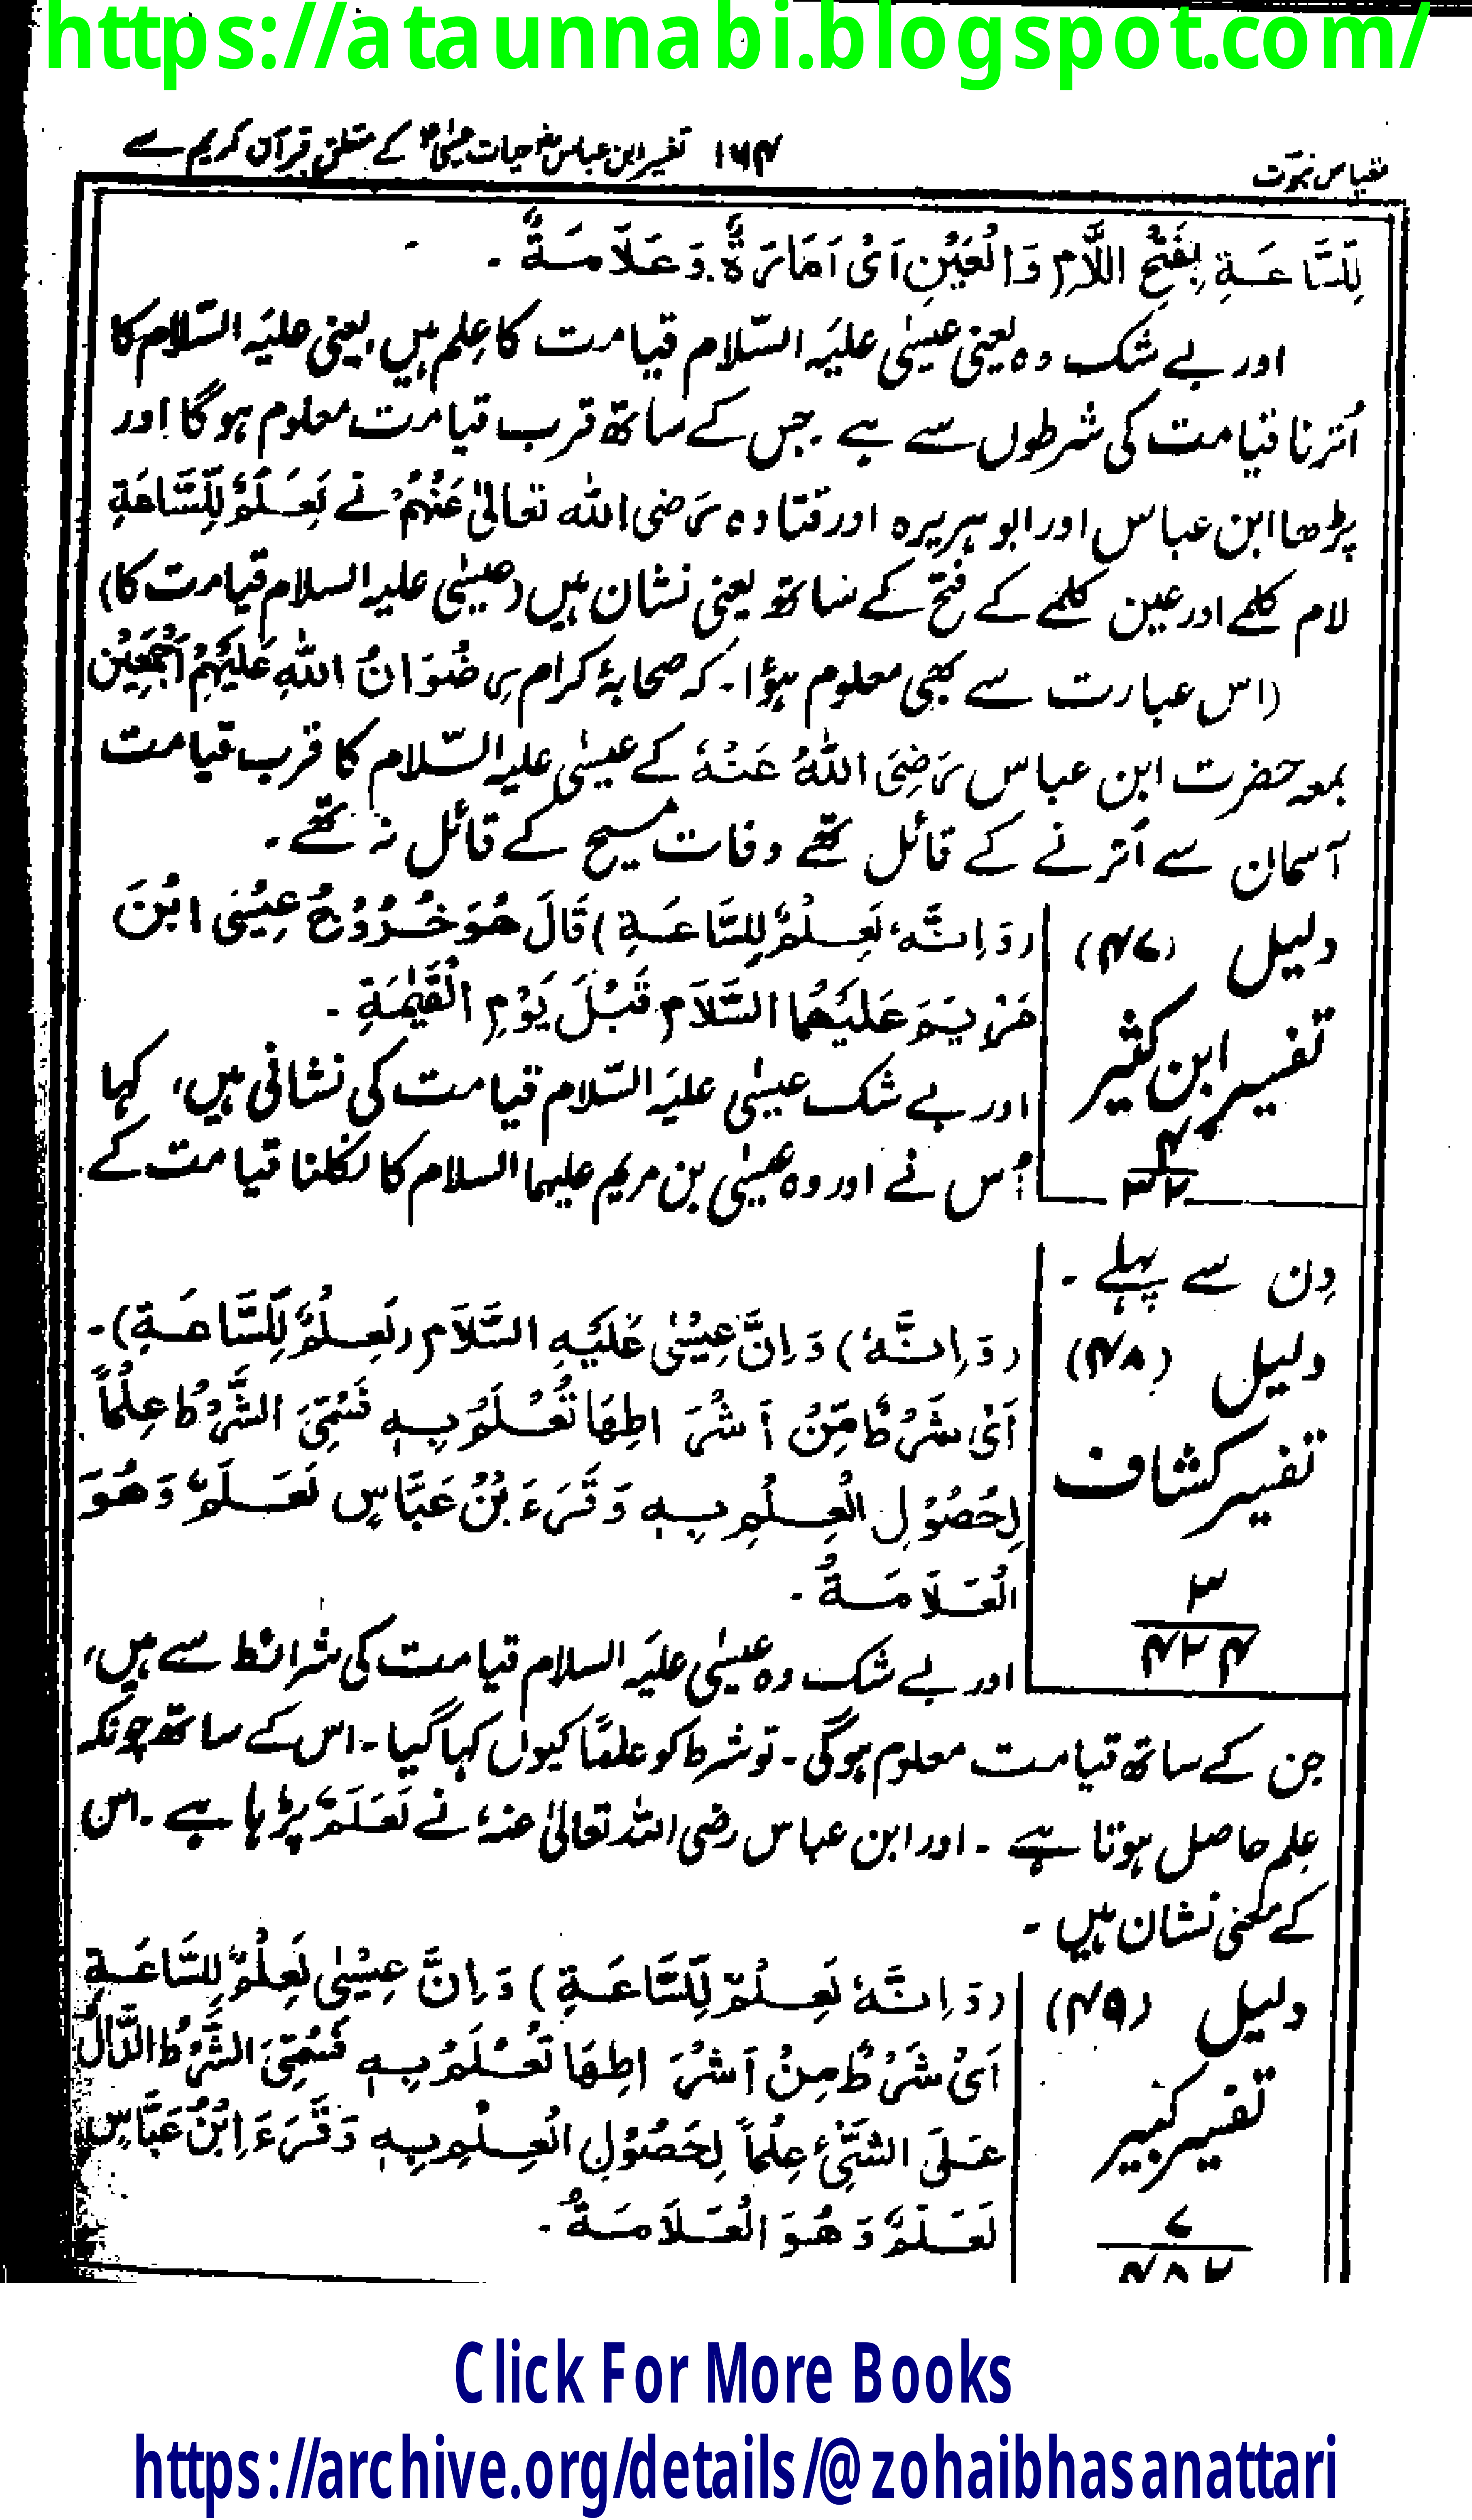 https://ataunnabi.blogspot.com/
مقیاس نبوّت ۱۶۴ تفسیر ابن عباسؓ حیات عیسیٰؑ کے متعلق قرآن کریم سے
لِلسَّاعَةِ بِفَتْحِ اللَّامِ وَالْعَيْنِ اَىْ اَمَارَةٌ وَعَلَامَةٌ ۔
اور بے شک وہ یعنی عیسیٰ علیَہ السّلام قیامت کا عِلم ہیں، یعنی علیَہ السّلام کا
اُترنا قیامت کی شرطوں سے ہے ۔ جس کے ساتھ قرب قیامت معلوم ہوگا اور
پڑھا ابن عباس اور ابوہریرہ اور قتادہ رَضی اللہ تعالیٰ عَنْہُمْ نے لَعَلَمٌ لِّلسَّاعَةِ
لام کلمے اور عین کلمے کے فتح کے ساتھ یعنی نشان ہیں (عیسیٰ علیہ السلام قیامت کا)
(اس عبارت سے بھی معلوم ہؤا ۔ کہ صحابۂ کرام رِضْوَانُ اللّٰهِ عَلَيْهِمْ اَجْمَعِيْن
بمعہ حضرت ابن عباس رَضِیَ اللّٰهُ عَنْهُ کے عیسٰی علیہ السّلام کا قرب قیامت
آسمان سے اُترنے کے قائل تھے وفات مسیح کے قائل نہ تھے ۔
دلیل (۴۷) (وَاِنَّهٗ لَعِلْمٌ لِّلسَّاعَةِ) قَالَ هُوَ خُرُوْجُ عِيْسٰى ابْنَ
مَرْيَمَ عَلَيْهِمَا السَّلَامِ قَبْلَ يَوْمِ الْقِيٰمَةِ ۔
تفسیر ابن کثیر
اور بے شک عیسٰی علیَہ السّلام قیامت کی نشانی ہیں، کہا
۴
اُس نے اور وہ عیسٰی بن مریم علیہما السلام کا نکلنا قیامت کے
دِن سے پہلے ۔
دلیل (۴۸) (وَاِنَّهٗ) وَاِنَّ عِيْسٰى عَلَيْهِ السَّلَامِ (لَعِلْمٌ لِّلسَّاعَةِ) ۔
اَىْ شَرْطٌ مِّنْ اَشْرَاطِهَا تُعْلَمُ بِهٖ فَسُمِّىَ الشَّرْطُ عِلْمًا
تفسیر کشاف
لِحُصُوْلِ الْعِلْمِ بِهٖ وَقَرَءَ بْنُ عَبَّاسٍ لَعَلَمٌ وَهُوَ
الْعَلَامَةُ ۔
۳
۴۲۴
اور بے شک وہ عیسٰی علیَہ السلام قیامت کی شرائط سے ہیں،
جن کے ساتھ قیامت معلوم ہوگی ۔ تو شرط کو علمًا کیوں کہا گیا ۔ اس کے ساتھ چونکہ
عِلم حاصل ہوتا ہے ۔ اور ابن عباس رضی اللہ تعالیٰ عنہٗ نے لَعَلَمٌ پڑہا ہے ۔ اس
کے معنی نشان ہیں ۔
دلیل (۴۹) (وَاِنَّهٗ لَعِلْمٌ لِّلسَّاعَةِ) وَاِنَّ عِيْسٰى لَعِلْمٌ لِلسَّاعَةِ
اَىْ شَرْطٌ مِنْ اَشْرَاطِهَا تُعْلَمُ بِهٖ فَسُمِّىَ الشَّرْطُ الدَّالُّ
تفسیر کبیر
عَلَى الشَّىْءِ عِلْمًا لِحُصُوْلِ الْعِلْمِ بِهٖ وَقَرَءَ اِبْنُ عَبَّاسٍ
لَعَلَمٌ وَهُوَ الْعَلَامَةُ ۔
۷
Click For More Books
https://archive.org/details/@zohaibhasanattari